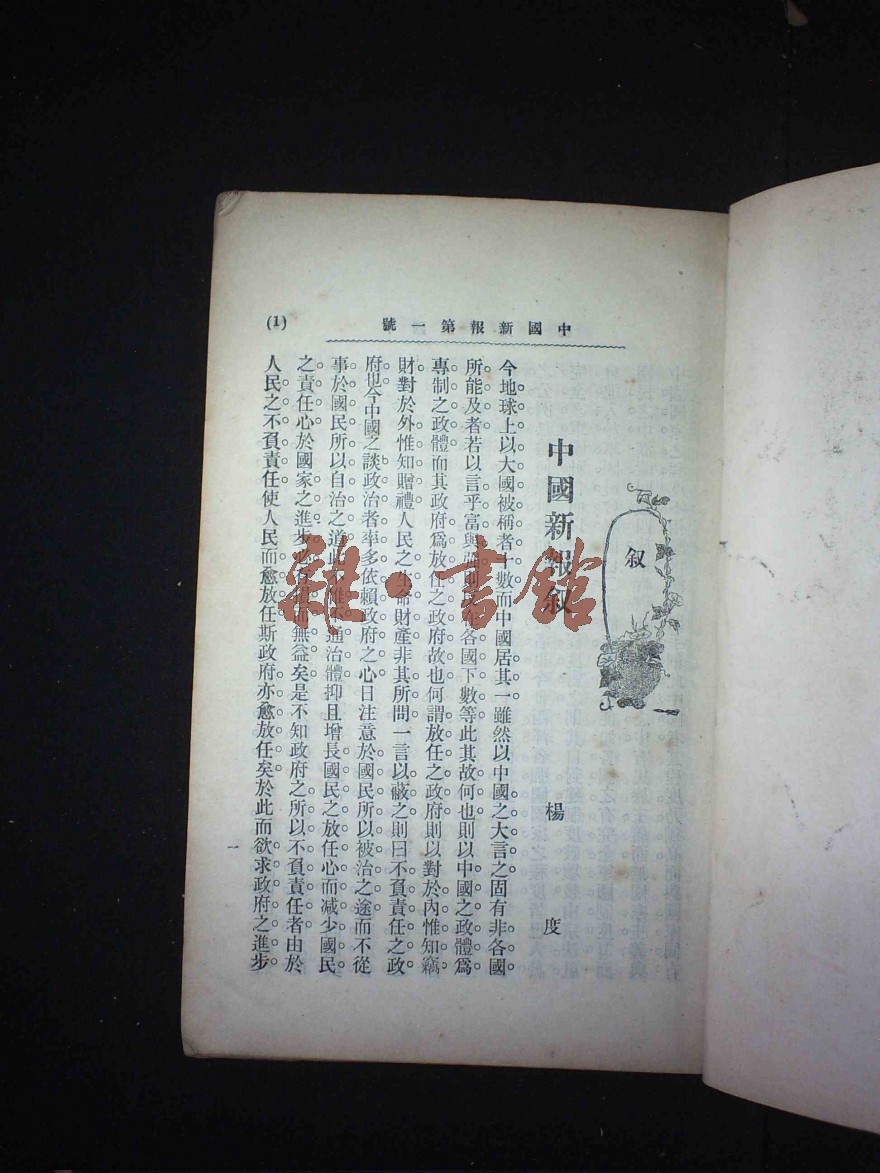 中國新報第一號
(1)
叙
中國新報叙
楊度
今地球上以大國被稱者十數而中國居其一雖然以中國之大言之固有非各國
所能及者若以言乎富與强則又在各國下數等此其故何也則以中國之政體爲
專制之政體而其政府爲放任之政府故也何謂放任之政府則以對於內惟知竊
財對於外惟知贈禮人民之生命財產非其所問一言以蔽之則曰不負責任之政
府也今中國之談政治者率多依賴政府之心日注意於國民所以被治之途而不從
事於國民所以自治之道此不惟不通治體抑且增長國民之放任心而減少國民
之責任心於國家之進步必有損而無益矣是不知政府之所以不負責任者由於
人民之不負責任使人民而愈放任斯政府亦愈放任矣於此而欲求政府之進步
一
雜·書館